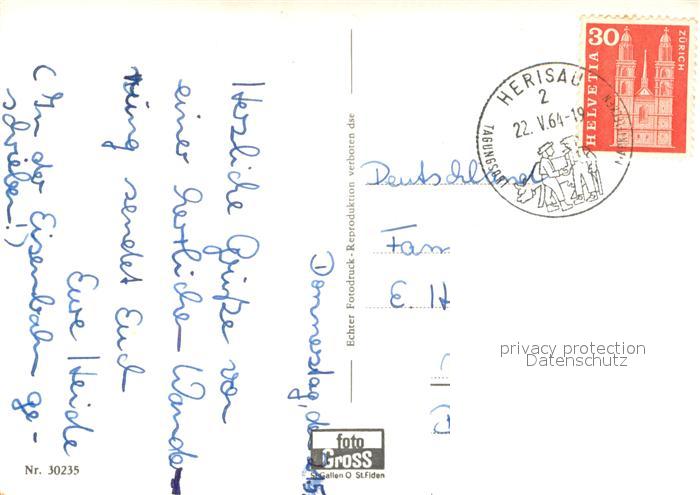 Donnerstag, d. 21.5.
Herzliche Grüße von
einer herrlichen Wande-
rung sendet Euch
Eure Heide
(In der Eisenbahn ge-
schrieben!)
Nr. 30235
Echter Fotodruck - Reproduktion verboten dse
foto
Gross
St.Gallen O St.Fiden
HERISAU
2
22. V. 64-19
TAGUNGS
30
HELVETIA
ZÜRICH
Deutschland
Fam
E. H
privacy protection
Datenschutz